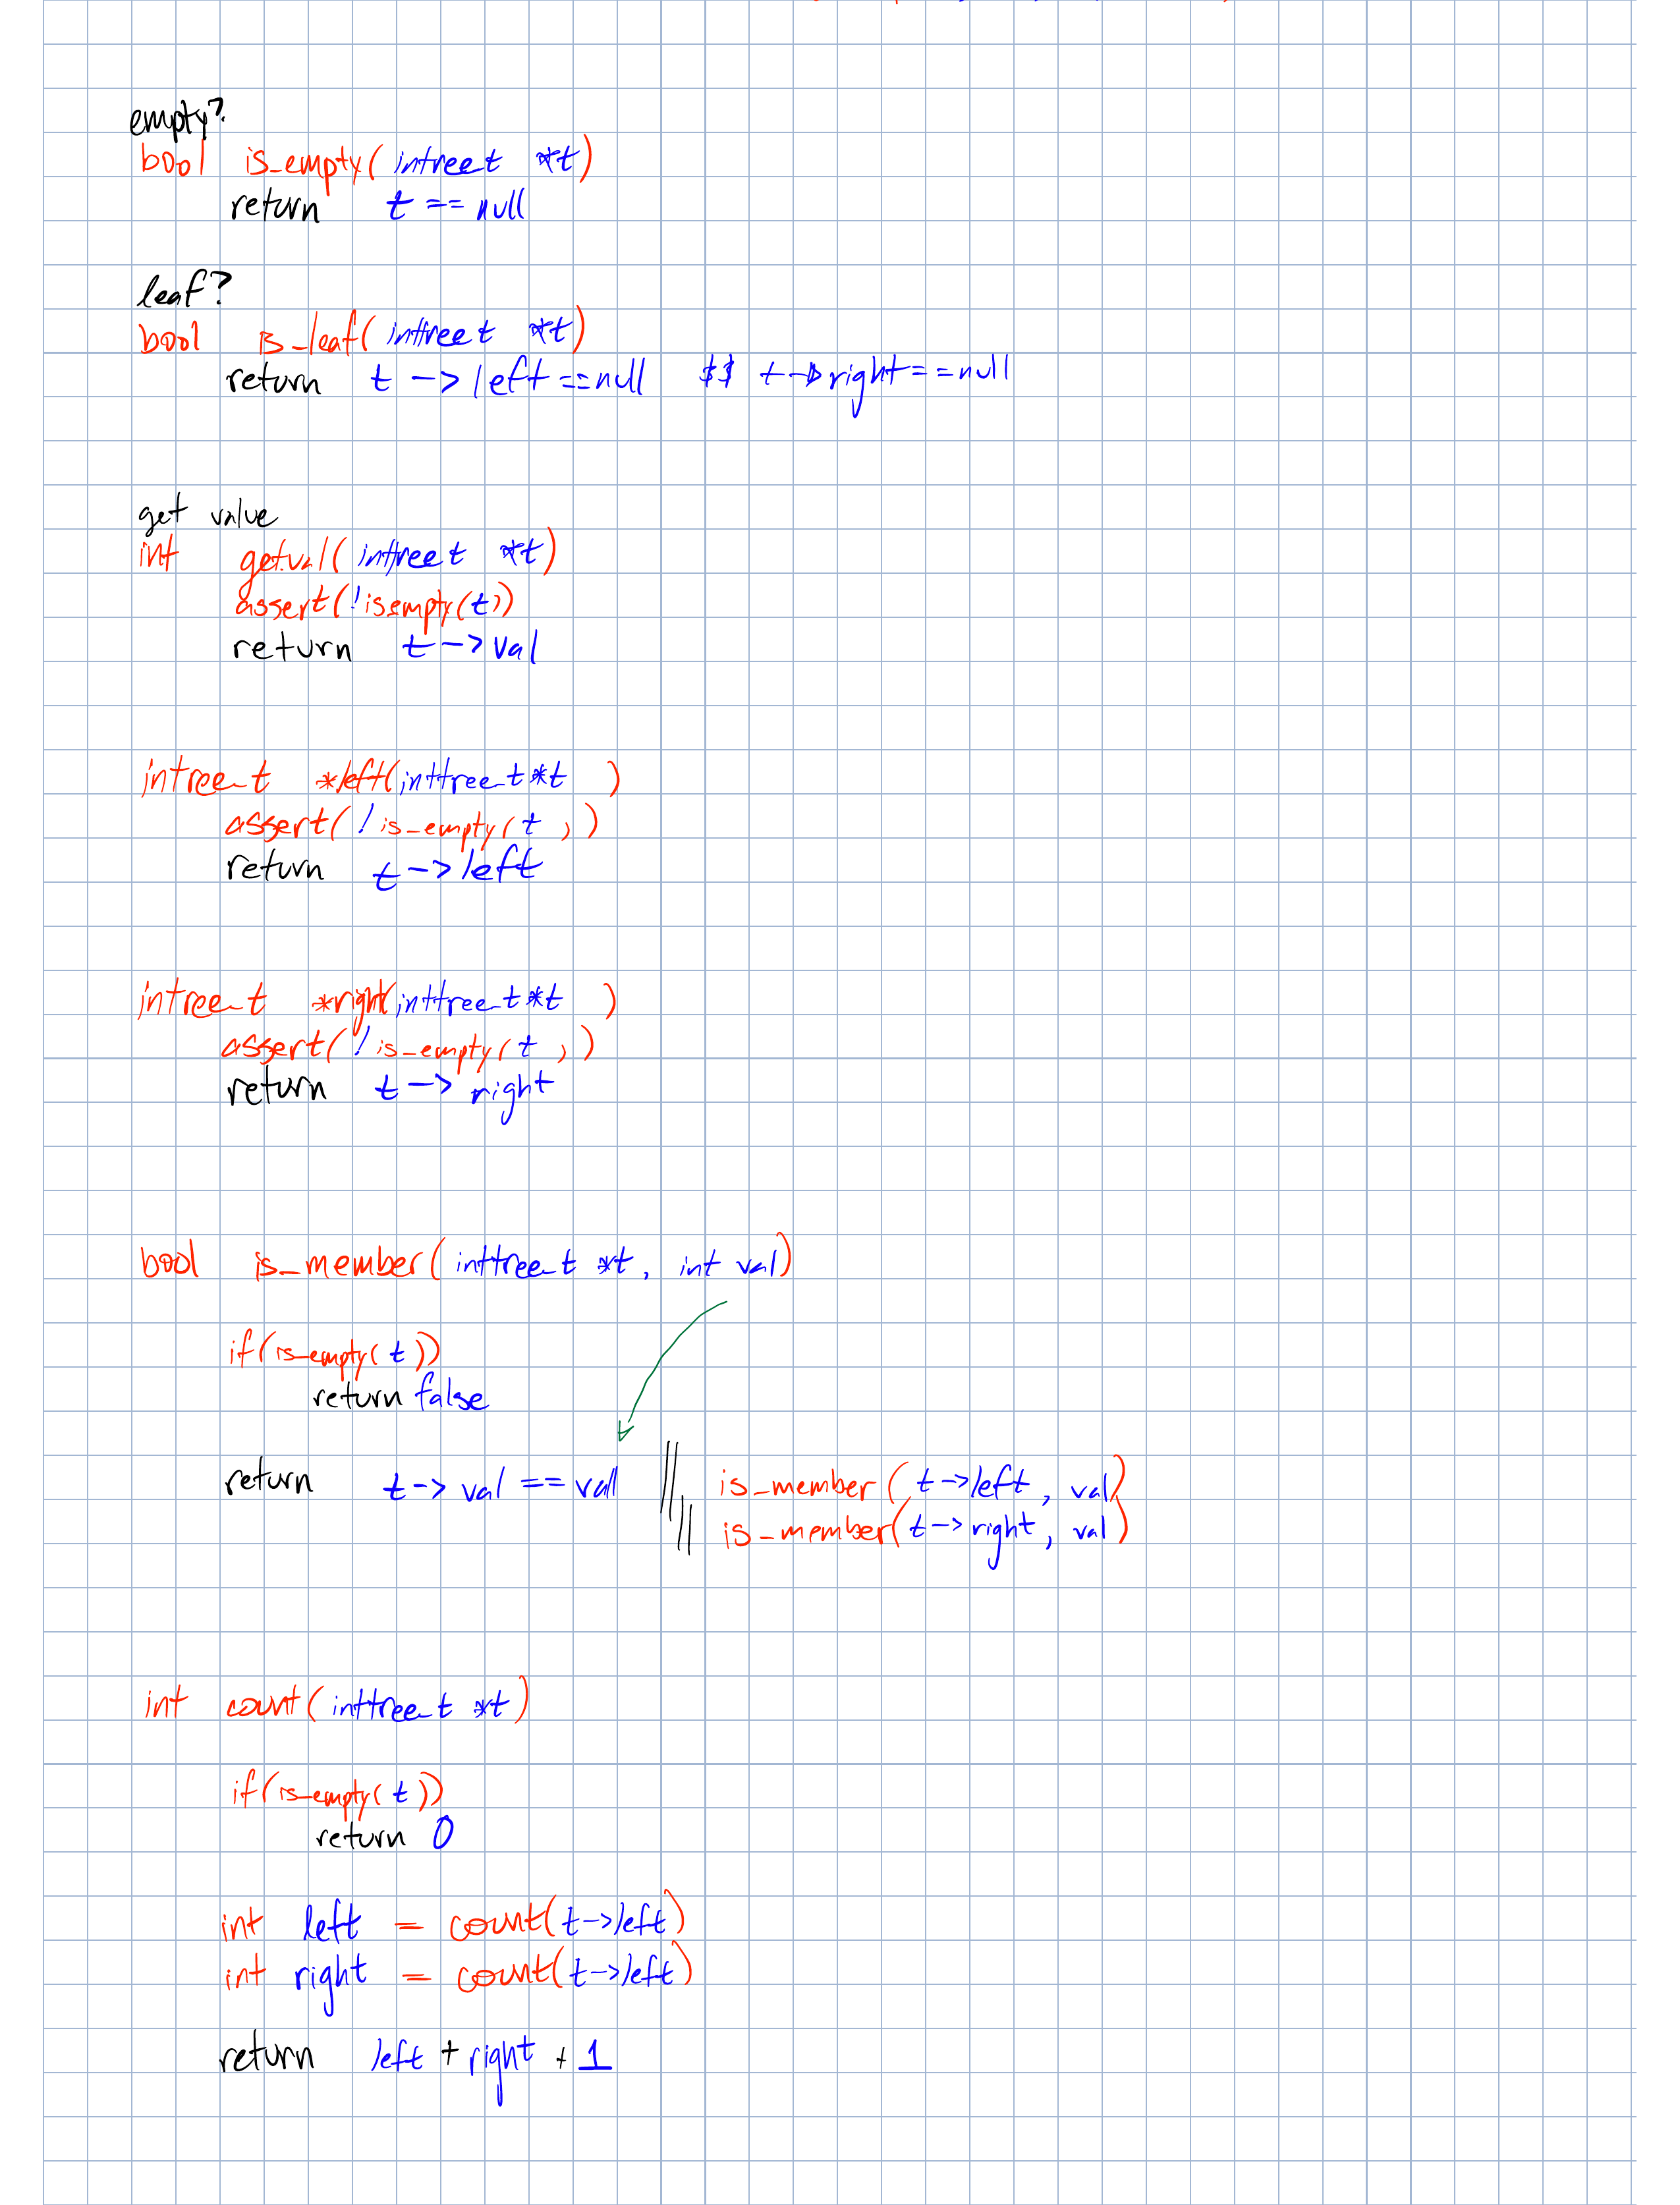 empty?
bool is_empty( intree_t *t)
return t == null
leaf?
bool is_leaf( inttree t *t)
return t -> left == null && t -> right == null
get value
int getval( inttree t *t)
assert(!isempty(t))
return t -> val
intree_t *left(inttree_t *t )
assert( ! is_empty( t , )
return t -> left
intree_t *right(inttree_t *t )
assert( ! is_empty( t , )
return t -> right
bool is_member( inttree_t *t, int val)
if(is_empty( t ))
return false
return t -> val == val || is_member( t -> left , val)
|| is_member( t -> right, val)
int count( inttree_t *t)
if(is_empty( t ))
return 0
int left = count( t -> left)
int right = count( t -> left)
return left + right + 1